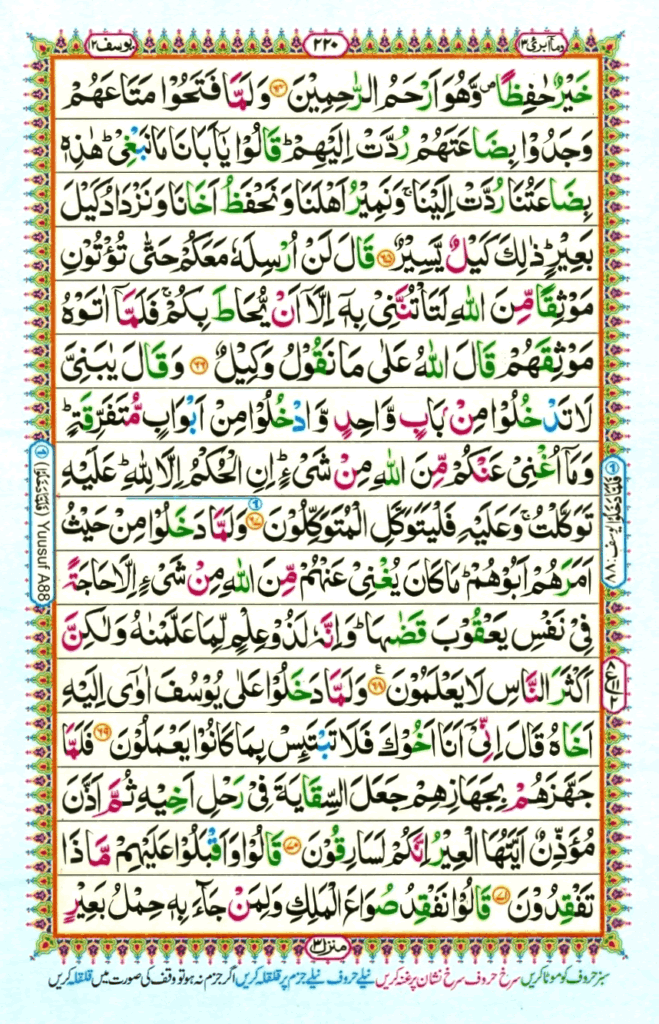 وما ابرئ ۱۳
۲۲۰
یوسف ۱۲
خَیْرٌ حٰفِظًا ۪ وَّهُوَ اَرْحَمُ الرّٰحِمِیْنَ ﴿۶۴﴾ وَلَمَّا فَتَحُوْا مَتَاعَهُمْ
وَجَدُوْا بِضَاعَتَهُمْ رُدَّتْ اِلَیْهِمْ ؕ قَالُوْا یٰۤاَبَانَا مَا نَبْغِیْ ؕ هٰذِهٖ
بِضَاعَتُنَا رُدَّتْ اِلَیْنَا ۚ وَنَمِیْرُ اَهْلَنَا وَنَحْفَظُ اَخَانَا وَنَزْدَادُ كَیْلَ
بَعِیْرٍ ؕ ذٰلِكَ كَیْلٌ یَّسِیْرٌ ﴿۶۵﴾ قَالَ لَنْ اُرْسِلَهٗ مَعَكُمْ حَتّٰی تُؤْتُوْنِ
مَوْثِقًا مِّنَ اللّٰهِ لَتَاْتُنَّنِیْ بِهٖۤ اِلَّاۤ اَنْ یُّحَاطَ بِكُمْ ۚ فَلَمَّاۤ اٰتَوْهُ
مَوْثِقَهُمْ قَالَ اللّٰهُ عَلٰی مَا نَقُوْلُ وَكِیْلٌ ﴿۶۶﴾ وَقَالَ یٰبَنِیَّ
لَا تَدْخُلُوْا مِنْۢ بَابٍ وَّاحِدٍ وَّادْخُلُوْا مِنْ اَبْوَابٍ مُّتَفَرِّقَةٍ ؕ
وَمَاۤ اُغْنِیْ عَنْكُمْ مِّنَ اللّٰهِ مِنْ شَیْءٍ ؕ اِنِ الْحُكْمُ اِلَّا لِلّٰهِ ؕ عَلَیْهِ
تَوَكَّلْتُ ۚ وَعَلَیْهِ فَلْیَتَوَكَّلِ الْمُتَوَكِّلُوْنَ ﴿۶۷﴾ وَلَمَّا دَخَلُوْا مِنْ حَیْثُ
اَمَرَهُمْ اَبُوْهُمْ ؕ مَا كَانَ یُغْنِیْ عَنْهُمْ مِّنَ اللّٰهِ مِنْ شَیْءٍ اِلَّا حَاجَةً
فِیْ نَفْسِ یَعْقُوْبَ قَضٰىهَا ؕ وَاِنَّهٗ لَذُوْ عِلْمٍ لِّمَا عَلَّمْنٰهُ وَلٰكِنَّ
اَكْثَرَ النَّاسِ لَا یَعْلَمُوْنَ ﴿۶۸﴾ وَلَمَّا دَخَلُوْا عَلٰی یُوْسُفَ اٰوٰۤی اِلَیْهِ
اَخَاهُ قَالَ اِنِّیْۤ اَنَا اَخُوْكَ فَلَا تَبْتَىِٕسْ بِمَا كَانُوْا یَعْمَلُوْنَ ﴿۶۹﴾ فَلَمَّا
جَهَّزَهُمْ بِجَهَازِهِمْ جَعَلَ السِّقَایَةَ فِیْ رَحْلِ اَخِیْهِ ثُمَّ اَذَّنَ
مُؤَذِّنٌ اَیَّتُهَا الْعِیْرُ اِنَّكُمْ لَسَارِقُوْنَ ﴿۷۰﴾ قَالُوْا وَاَقْبَلُوْا عَلَیْهِمْ مَّا ذَا
تَفْقِدُوْنَ ﴿۷۱﴾ قَالُوْا نَفْقِدُ صُوَاعَ الْمَلِكِ وَلِمَنْ جَآءَ بِهٖ حِمْلُ بَعِیْرٍ
Yuusuf A88
منزل ۳
سبز حروف کو موٹا کریں سرخ حروف سرخ نشان پر غنہ کریں نیلے حروف نیلے جزم پر قلقلہ کریں اگر جزم نہ ہو تو وقف کی صورت میں قلقلہ کریں